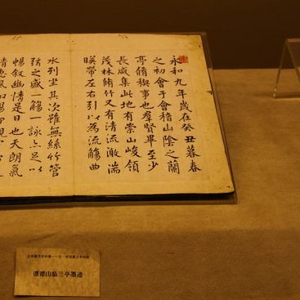 永和九年歲在癸丑暮春
之初會于會稽山陰之蘭
亭脩禊事也羣賢畢至少
長咸集此地有崇山峻領
茂林脩竹又有清流激湍
暎帶左右引以為流觴曲
水列坐其次雖無絲竹管
弦之盛一觴一詠亦足以
暢敘幽情是日也天朗氣
清惠風和暢仰觀